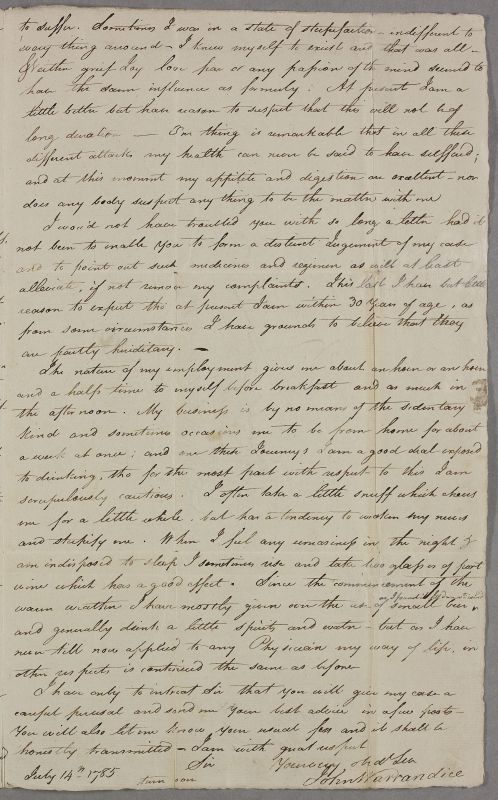 to suffer. Sometimes I was in a state of stupefaction - indifferent to
every thing around - I knew myself to exist and that was all -
Neither grief Joy love fear or any passion of the mind seemed to
have the same influence as formerly: At present I am a
little better but have reason to suspect that this will not be of
long duration — One thing is remarkable that in all these
different attacks my health can never be said to have suffered;
and at this moment my appitite and digestion are excellent - nor
does any body suspect any thing to be the matter with me
I wou'd not have troubled you with so long a letter had it
not been to enable you to form a distinct Judgement of my case
and to point out such medicines and regimen as will at least
alleviate, if not remove my complaints. This last I have but little
reason to expect tho' at present I am within 30 years of age, as
from some circumstances I have grounds to believe that they
are partly heriditary. —
The nature of my employment gives me about an hour or an hour
and a half's time to myself before breakfast and as much in
the afternoon. My business is by no means of the sedentary
kind and sometimes occasions me to be from home for about
a week at once; and on these Journeys I am a good deal exposed
to drinking, tho' for the most part with respect to this I am
scrupulously cautious. I often take a little snuff which chears
me for a little while but has a tendency to weaken my nerves
and stupify me. When I feel any uneasiness in the night &
am indisposed to sleep I sometimes rise and take two glasses of port
wine which has a good effect. Since the commencement of the
warm weather I have mostly given over the use of small beer
and generally drink a little spirits and water - but as I have
never till now applied to any Physician my way of life in
other respects is continued the same as before
I have only to intreat Sir that you will give my case a
careful perusal and send me your best advice in a few posts -
You will also let me know your usual fee and it shall be
honestly transmitted - I am with great respect
Sir Your very obed.t Ser
July 14th 1785 John Warrandice
turn over